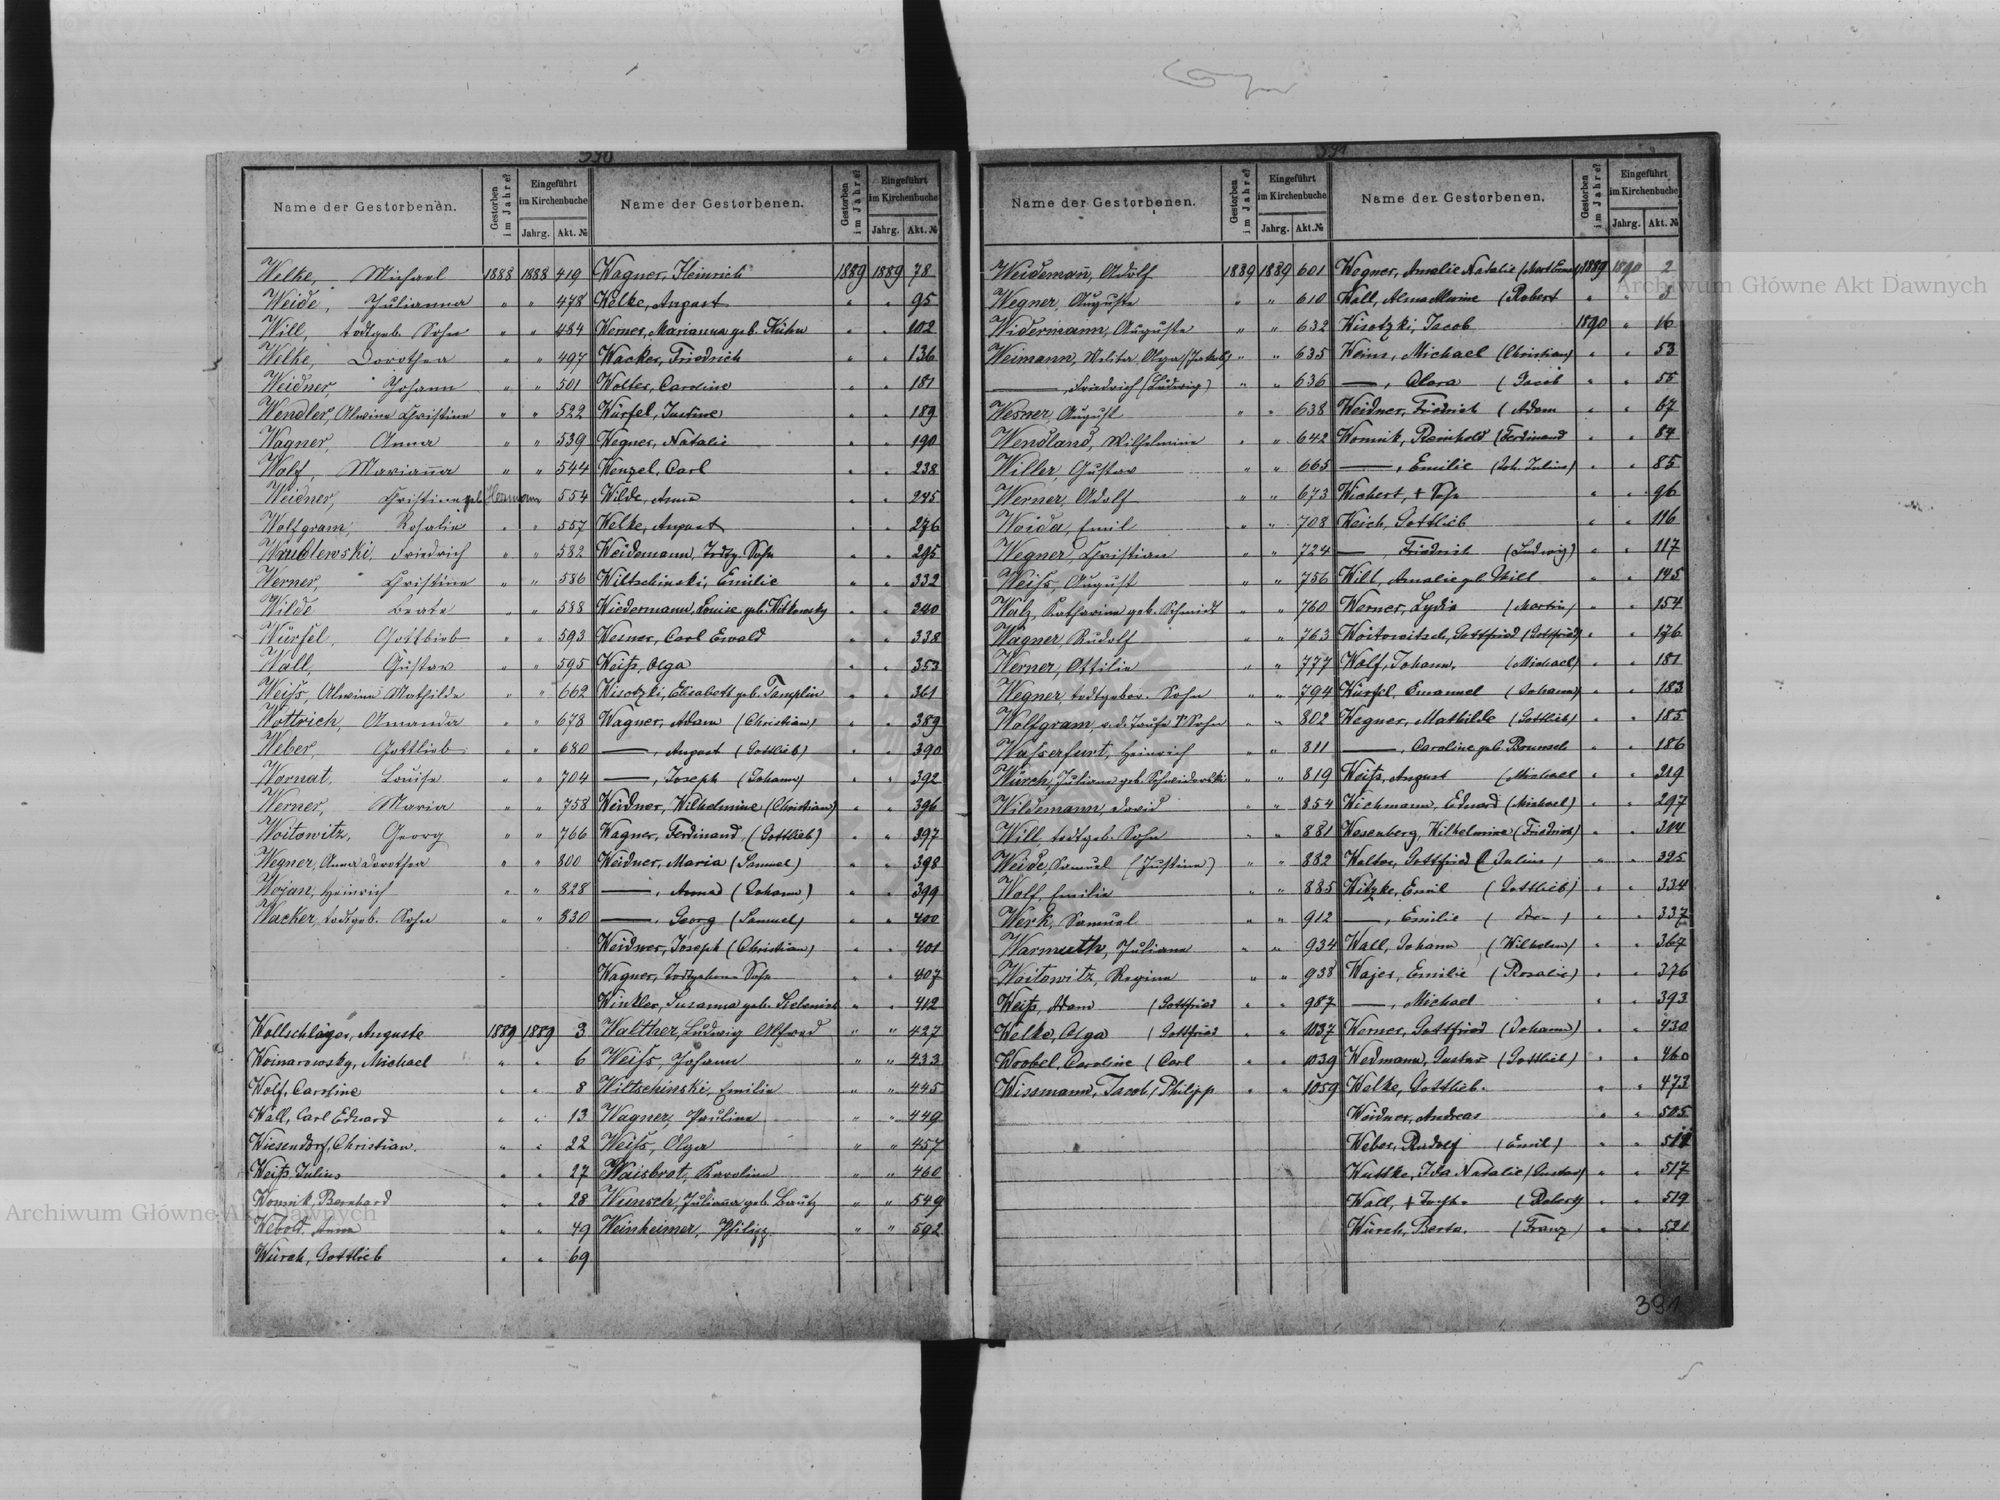 390
Name der Gestorbenen.
Gestorben im Jahre?
Eingeführt im Kirchenbuche
Jahrg.
Akt. №
Name der Gestorbenen.
Gestorben im Jahre?
Eingeführt im Kirchenbuche
Jahrg.
Akt. №
Welke, Michael 1888 1888 419
Weide, Julianna " " 478
Will, todtgeb. Sohn " " 484
Welke, Dorothea " " 497
Weidner, Johann " " 501
Wendler, Alwine Christine " " 522
Wagner, Anna " " 539
Wolf, Marianna " " 544
Weidner, Christine geb. Hermann 554
Wolfgram, Rosalie " " 557
Friedrich " " 582
Werner, Christine " " 586
Wilde Beate " " 588
Würfel, Gottlieb " " 593
Wall, Gustav " " 595
Weiss, Alwine Mathilde " " 662
Wottrich, Amanda " " 678
Weber, Gottlieb " " 680
Wornat, Louise " " 704
Werner, Maria " " 758
Woitowitz, Georg " " 766
Wegner, Anna Dorothea " " 800
Wojan, Heinrich " " 828
Wacker, todtgeb. Sohn " " 830
Wollschläger, Auguste 1889 1889 3
Woinarowsky, Michael " " 6
Wolf, Caroline " " 8
Wall, Carl Eduard " " 13
Wiesendorf, Christian. " " 22
Weiss, Julius " " 27
Wonnik, Bernhard " " 28
Anna " " 49
Würch, Gottlieb " " 69
Wagner, Heinrich 1889 1889 78
Welke, August " " 95
Werner, Marianna geb. Kühn " " 102
Wacker, Friedrich " " 136
Wolter, Caroline " " 181
Würfel, Justine " " 189
Wegner, Natalie " " 190
Wenzel, Carl " " 238
Wilde, Anna " " 245
Welke, August " " 276
Weidemann, Todtg. Sohn " " 295
Wiltschinski, Emilie " " 332
Wiedermann, Louise geb. Witkowsky " " 340
Wesner, Carl Ewald " " 338
Weiss, Olga " " 353
Wisotzki, Elisabeth geb. Templin " " 361
Wagner, Adam (Christian) " " 389
—, August (Gottlieb) " " 390
—, Joseph (Johann) " " 392
Weidner, Wilhelmine (Christian) " " 396
Wagner, Ferdinand (Gottlieb) " " 397
Weidner, Maria (Samuel) " " 398
—, Anna (Johann) " " 399
—, Georg (Samuel) " " 400
Weidner, Joseph (Christian) " " 401
Wagner, Todtgeboren Sohn " " 407
Winkler, Susanna geb. " " 412
Walther, Ludwig Alfred " " 427
Weiss, Johann " " 433
Wiltschinski, Emilie " " 445
Wagner, Pauline " " 449
Weiss, Olga " " 457
Waisbrot, Karoline " " 460
Wunsch, Julianna geb. Bautz " " 549
Weinheimer, Philipp " " 592
391
Name der Gestorbenen.
Gestorben im Jahre?
Eingeführt im Kirchenbuche
Jahrg.
Akt. №
Name der Gestorbenen.
Gestorben im Jahre?
Eingeführt im Kirchenbuche
Jahrg.
Akt. №
Weidemann, Adolf 1889 1889 601
Wegner, Auguste " " 610
Widermann, Auguste " " 632
Weimann, Olga (Jakob) " " 635
—, Friedrich (Ludwig) " " 636
Wesner, August " " 638
Wendland, Wilhelmine " " 642
Willer, Gustav " " 665
Werner, Adolf " " 673
Woida, Emil " " 708
Wegner, Christian " " 724
Weiss, August " " 756
Walz, Katharina geb. Schmidt " " 760
Wagner, Rudolf " " 763
Werner, Ottilie " " 777
Wegner, todtgebor. Sohn " " 794
Wolfgram, v. d. Taufe v. Sohn " " 802
Wasserfurt, Heinrich " " 811
Würch, Juliana geb. " " 819
Wildemann, David " " 854
Will, todtgeb. Sohn " " 881
Weide, Samuel (Justine) " " 882
Wolf, Emilie " " 885
Werk, Samuel " " 912
Warmuth, Juliana " " 934
Woitowitz, Regine " " 938
Weiss, Adam (Gottfried " " 987
Welke, Olga (Gottfried " " 1037
Caroline (Carl " " 1039
Wissmann, Jacob, Philipp " " 1059
Wegner, Amalie Natalie 1889 1890 2
Wall, Alma Marie (Robert " " 3
Wisotzki, Jacob 1890 " 16
Weiss, Michael (Christian) " " 53
—, Clara (Jacob " " 55
Weidner, Friedrich (Adam " " 67
Wonnik, Reinhold (Ferdinand " " 84
—, Emilie (Joh. Julius) " " 85
Wichert, + Sohn " " 96
Weich, Gottlieb " " 116
—, Friedrich (Ludwig) " " 117
Will, Amalie geb. Will " " 145
Werner, Lydia (Martin) " " 154
Woitowitsch, Gottfried (Gottfried) " " 176
Wolf, Johann, (Michael) " " 181
Würfel, Emanuel (Johann) " " 183
Wegner, Mathilde (Gottlieb) " " 185
—, Caroline geb. " " 186
Weiss, August (Michael " " 219
Wichmann, Eduard (Michael) " " 297
Wesenberg, Wilhelmine (Friedrich) " " 314
Walter, Gottfried (Julius) " " 325
Witzke, Emil (Gottlieb) " " 334
—, Emilie " " 337
Wall, Johann (Wilhelm) " " 367
Wajer, Emilie (Rosalie) " " 376
—, Michael " " 393
Werner, Gottfried (Johann) " " 430
Wedmann, Gustav (Gottlieb) " " 460
Welke, Gottlieb. " " 473
Weidner, Andreas " " 505
Weber, Rudolf (Emil) " "
Wuttke, Ida Natalie (Gustav) " " 517
Wall, + Tocht. (Robert) " " 519
Würch, Berta. (Franz) " " 521
391
Archiwum Główne Akt Dawnych
Archiwum Główne Akt Dawnych